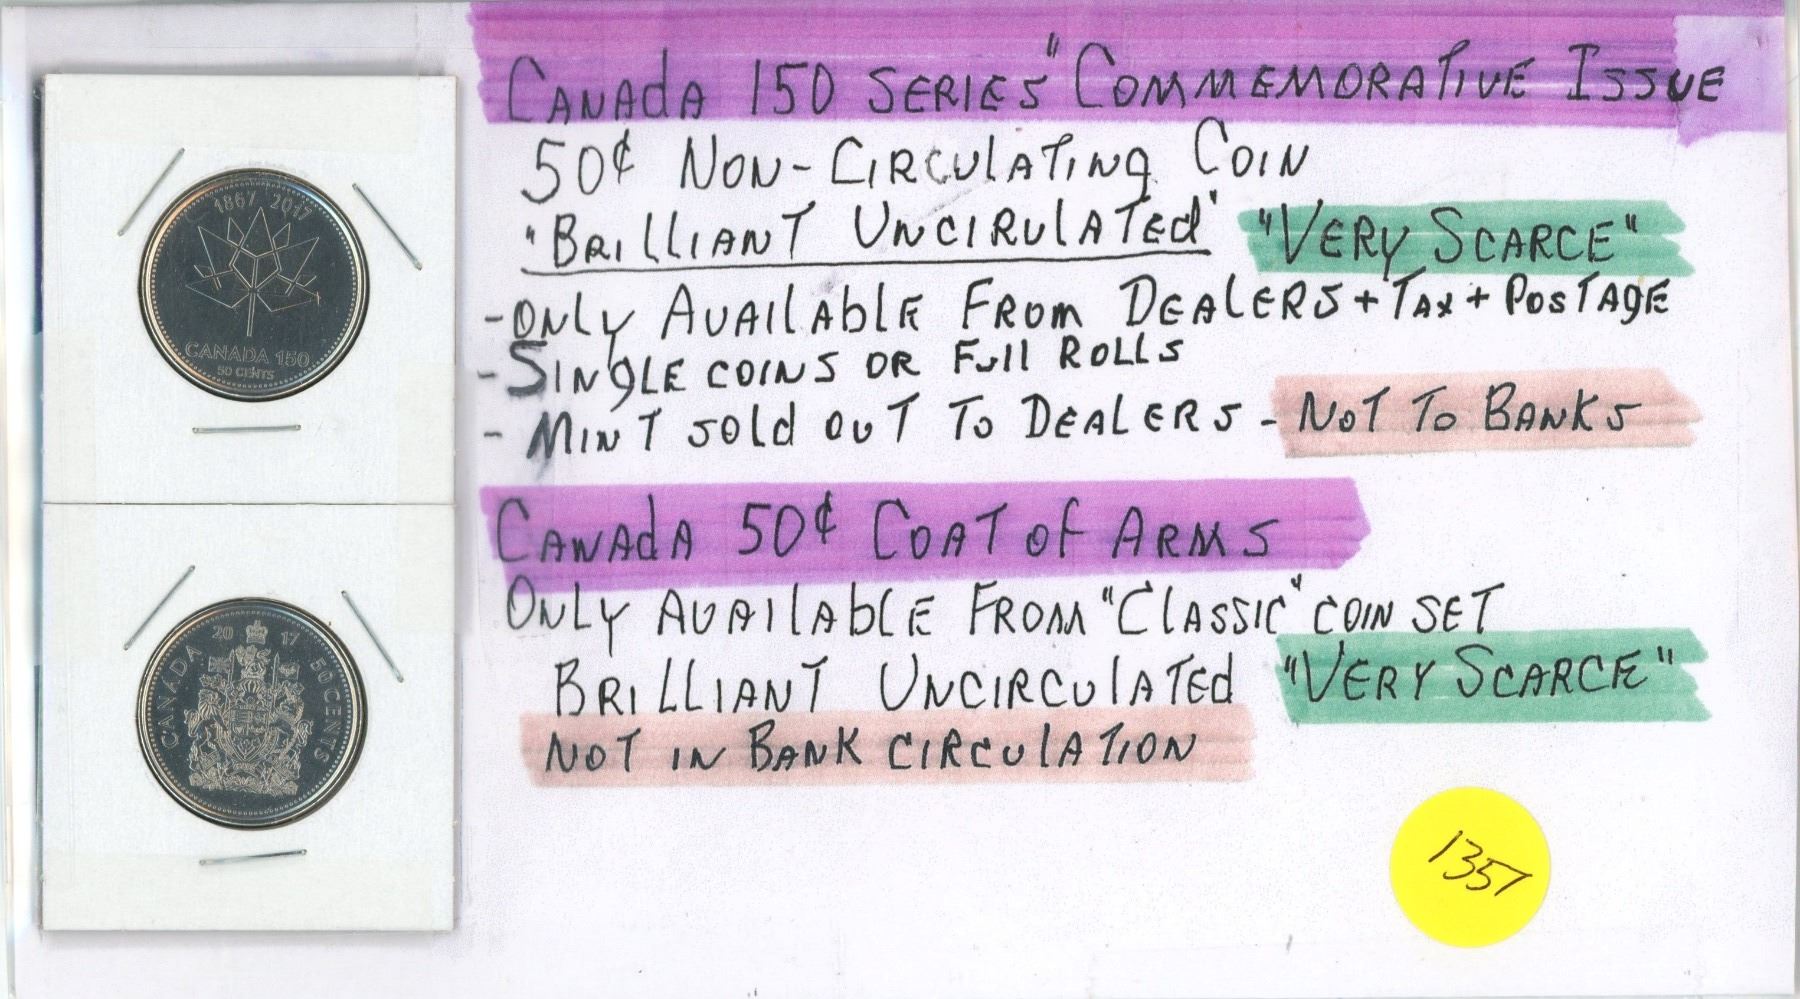 1867 2017
CANADA 150
50 CENTS
20 17
CANADA
50 CENTS
CANADA 150 SERIES "COMMEMORATIVE ISSUE
50¢ NON-CIRCULATING COIN
"BRILLIANT UNCIRULATED" "VERY SCARCE"
-ONLY AVAILABLE FROM DEALERS + TAX + POSTAGE
-SINGLE COINS OR FULL ROLLS
- MINT SOLD OUT TO DEALERS - NOT TO BANKS
CANADA 50¢ COAT OF ARMS
ONLY AVAILABLE FROM "CLASSIC" COIN SET
BRILLIANT UNCIRCULATED "VERY SCARCE"
NOT IN BANK CIRCULATION
1357